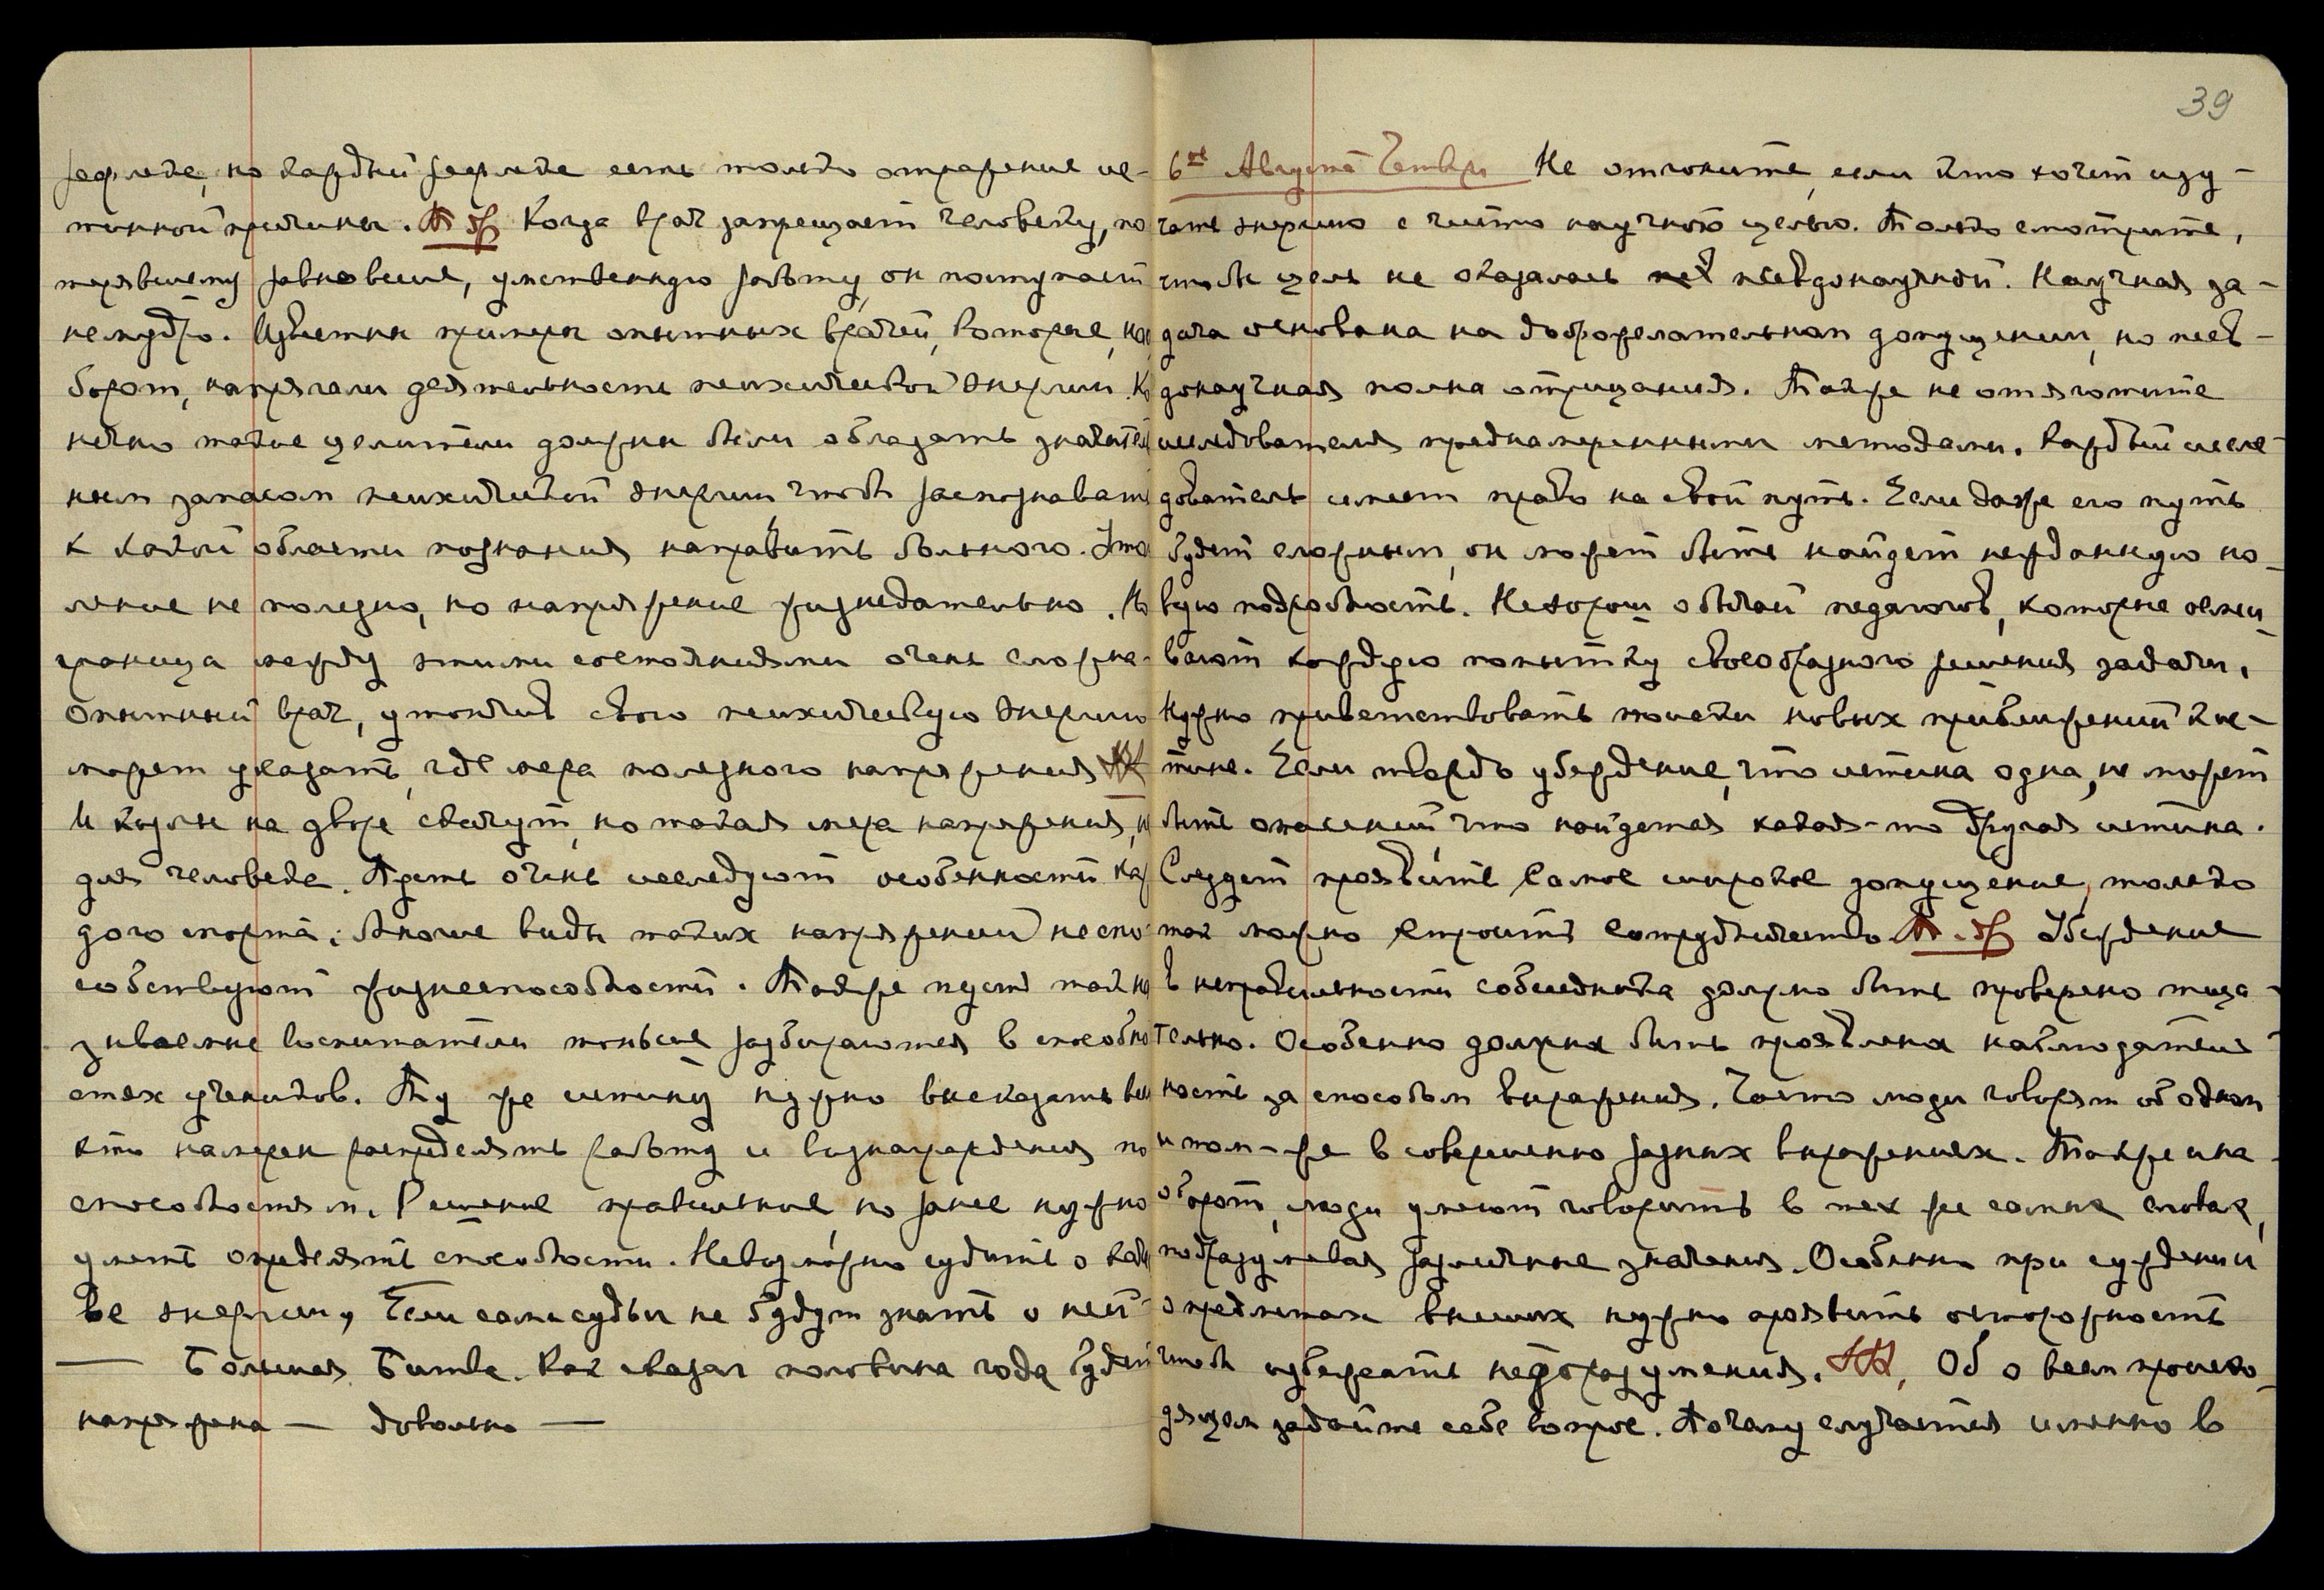 рефлекс, но каждый рефлекс есть только отражение ис-
тинной причины. Когда врач запрещает человеку, по
терявшему равновесие, умственную работу, он поступает
немудро. Известны примеры опытных врачей, которые, нао
борот, напрягали деятельность психической энергии. Ко
нечно такие целители должны были обладать значитель
ным запасом психической энергии, чтобы распознавать
к какой области познания направить больного.
ление не полезно, но напряжение жизнедательно. Но
граница между этими состояниями очень сложна.
Опытный врач, утончив свою психическую энергию
может указать, где мера полезного напряжения
И козлы на дворе скачут, но такая мера напряжения, не
для человека. Пусть очень исследуют особенности каж
дого спорта. Многие виды таких напряжений не спо
собствуют жизнеспособности. Также пусть так на
зываемые воспитатели тоньше разбираются в способно
стях учеников. Ту же истину нужно высказать всем
кто намерен распределять работу и вознаграждения по
способностям. Решение правильное, но ранее нужно
уметь определять способности. Невозможно судить о каче
ве энергии, если сами судьи не будут знать о ней
— Большая Битва. Как сказал половина года будет
напряжена — довольно —
39
6ое Августа Четверг Не отгоните, если кто хочет изу-
чать энергию с чисто научною целью. Только смотрите,
чтобы цель не оказалась псевдонаучной. Научная за-
дача основана на доброжелательном допущении, но псев-
донаучная полна отрицания. Также не отяготите
исследователя преднамеренными методами. Каждый иссле-
дователь имеет право на свой путь. Если даже его путь
будет сложным, он может быть найдет нежданную но-
вую подробность. Нехорош обычай педагогов, которые осмеи-
вают каждую попытку своеобразного решения задачи.
Нужно приветствовать поиски новых приближений к ис-
тине. Если твердо убеждение, что истина одна, не может
быть опасений, что найдется какая-то другая истина.
Следует проявить самое широкое допущение, только
так можно строить сотрудничество Убеждение
в неправильности собеседника должно быть проверено тща-
тельно. Особенно должна быть проявлена наблюдатель
ность за способом выражения. Часто люди говорят об одном
и том-же в совершенно разных выражениях. Также и на
оборот, люди умеют говорить в тех же самых словах,
подразумевая различные значения. Особенно при суждении
о предметах высших нужно проявить осторожность
чтобы избежать недоразумения. Обо всем происхо-
дящем задайте себе вопрос. Почему случается именно в